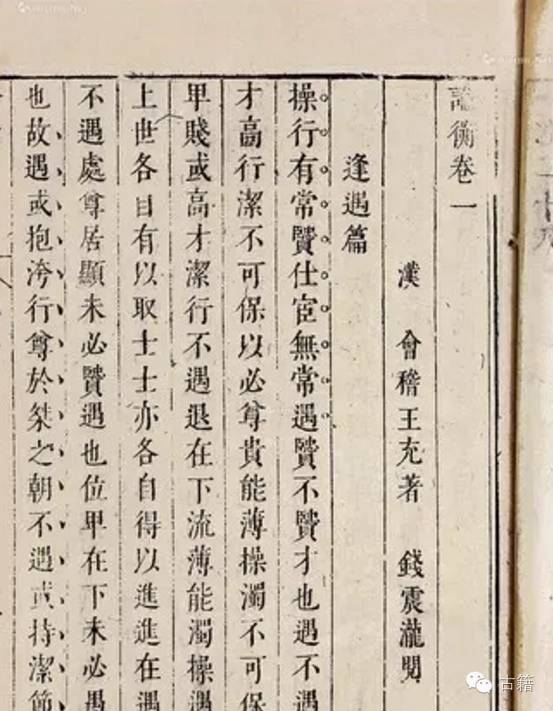 論衡卷一
漢 會稽王充著 錢震瀧閱
逢遇篇
操行有常賢仕宦無常遇賢不賢才也遇不遇
才高行潔不可保以必尊貴能薄操濁不可保
卑賤或高才潔行不遇退在下流薄能濁操遇
上世各自有以取士士亦各自得以進進在遇
不遇處尊居顯未必賢遇也位卑在下未必愚
也故遇或抱洿行尊於桀之朝不遇或持潔節
古籍